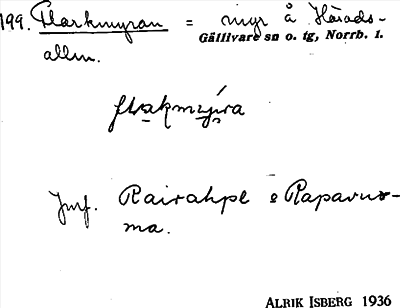 199. Flarkmyran = myr å Härads-
Gällivare sn o. tg, Norrb. l.
allm.
flɑkmyɪ̨́ra
Jmf. Rairahpe o Raparus-
ma.
ALRIK ISBERG 1936